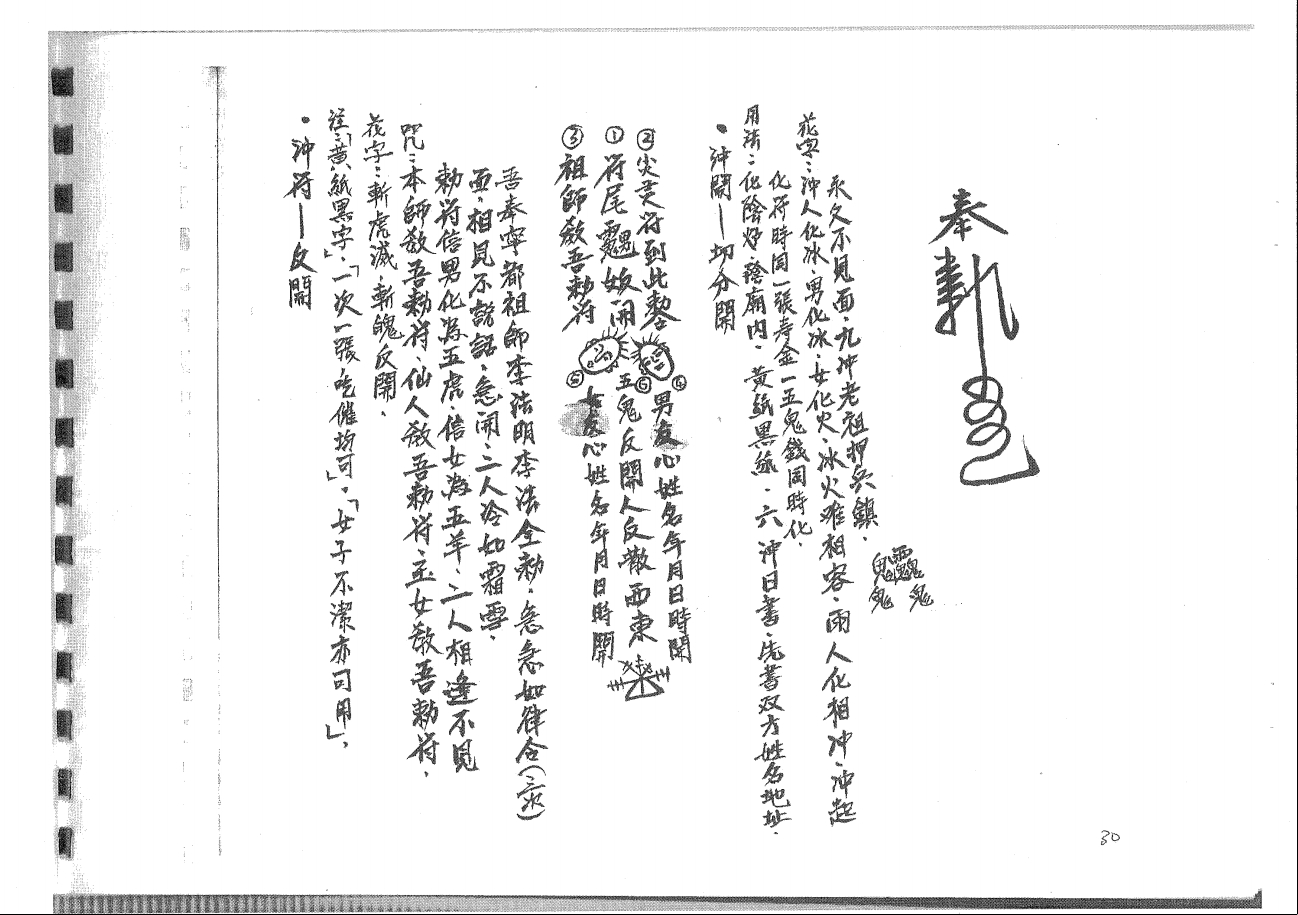 奉
勅
永久不見面、九冲老祖押兵鎮。
花字：冲人化冰、男化冰、女化火、冰火难相容、雨人化相冲、冲起
化符時同一張寿金一五鬼錢同時化。
用法：化陰好、陰廟内、黄紙黑, 六冲日書、先書双方姓名地址、
•冲開—切分開
②尖灵符到此 ⑥男友心姓名年月日時開
①符尾 開 ⑤五鬼反開人反散西東
③祖師敎吾勅符 女友心姓名年月日時開
吾奉寧都祖師李法明李法全勅、急急如律令（三次）
面、相見不説話、急開、二人冷如霜雪、
勅符信男化為五虎、信女為五羊、二人相逢不見
咒：本師敎吾勅符、仙人敎吾勅符、玉女敎吾勅符、
花字：斬虎滅、斬 反開、
注：「黄紙黑字」、「一次一張吃催均可」。「女子不潔亦可用」、
•冲符—反開
30